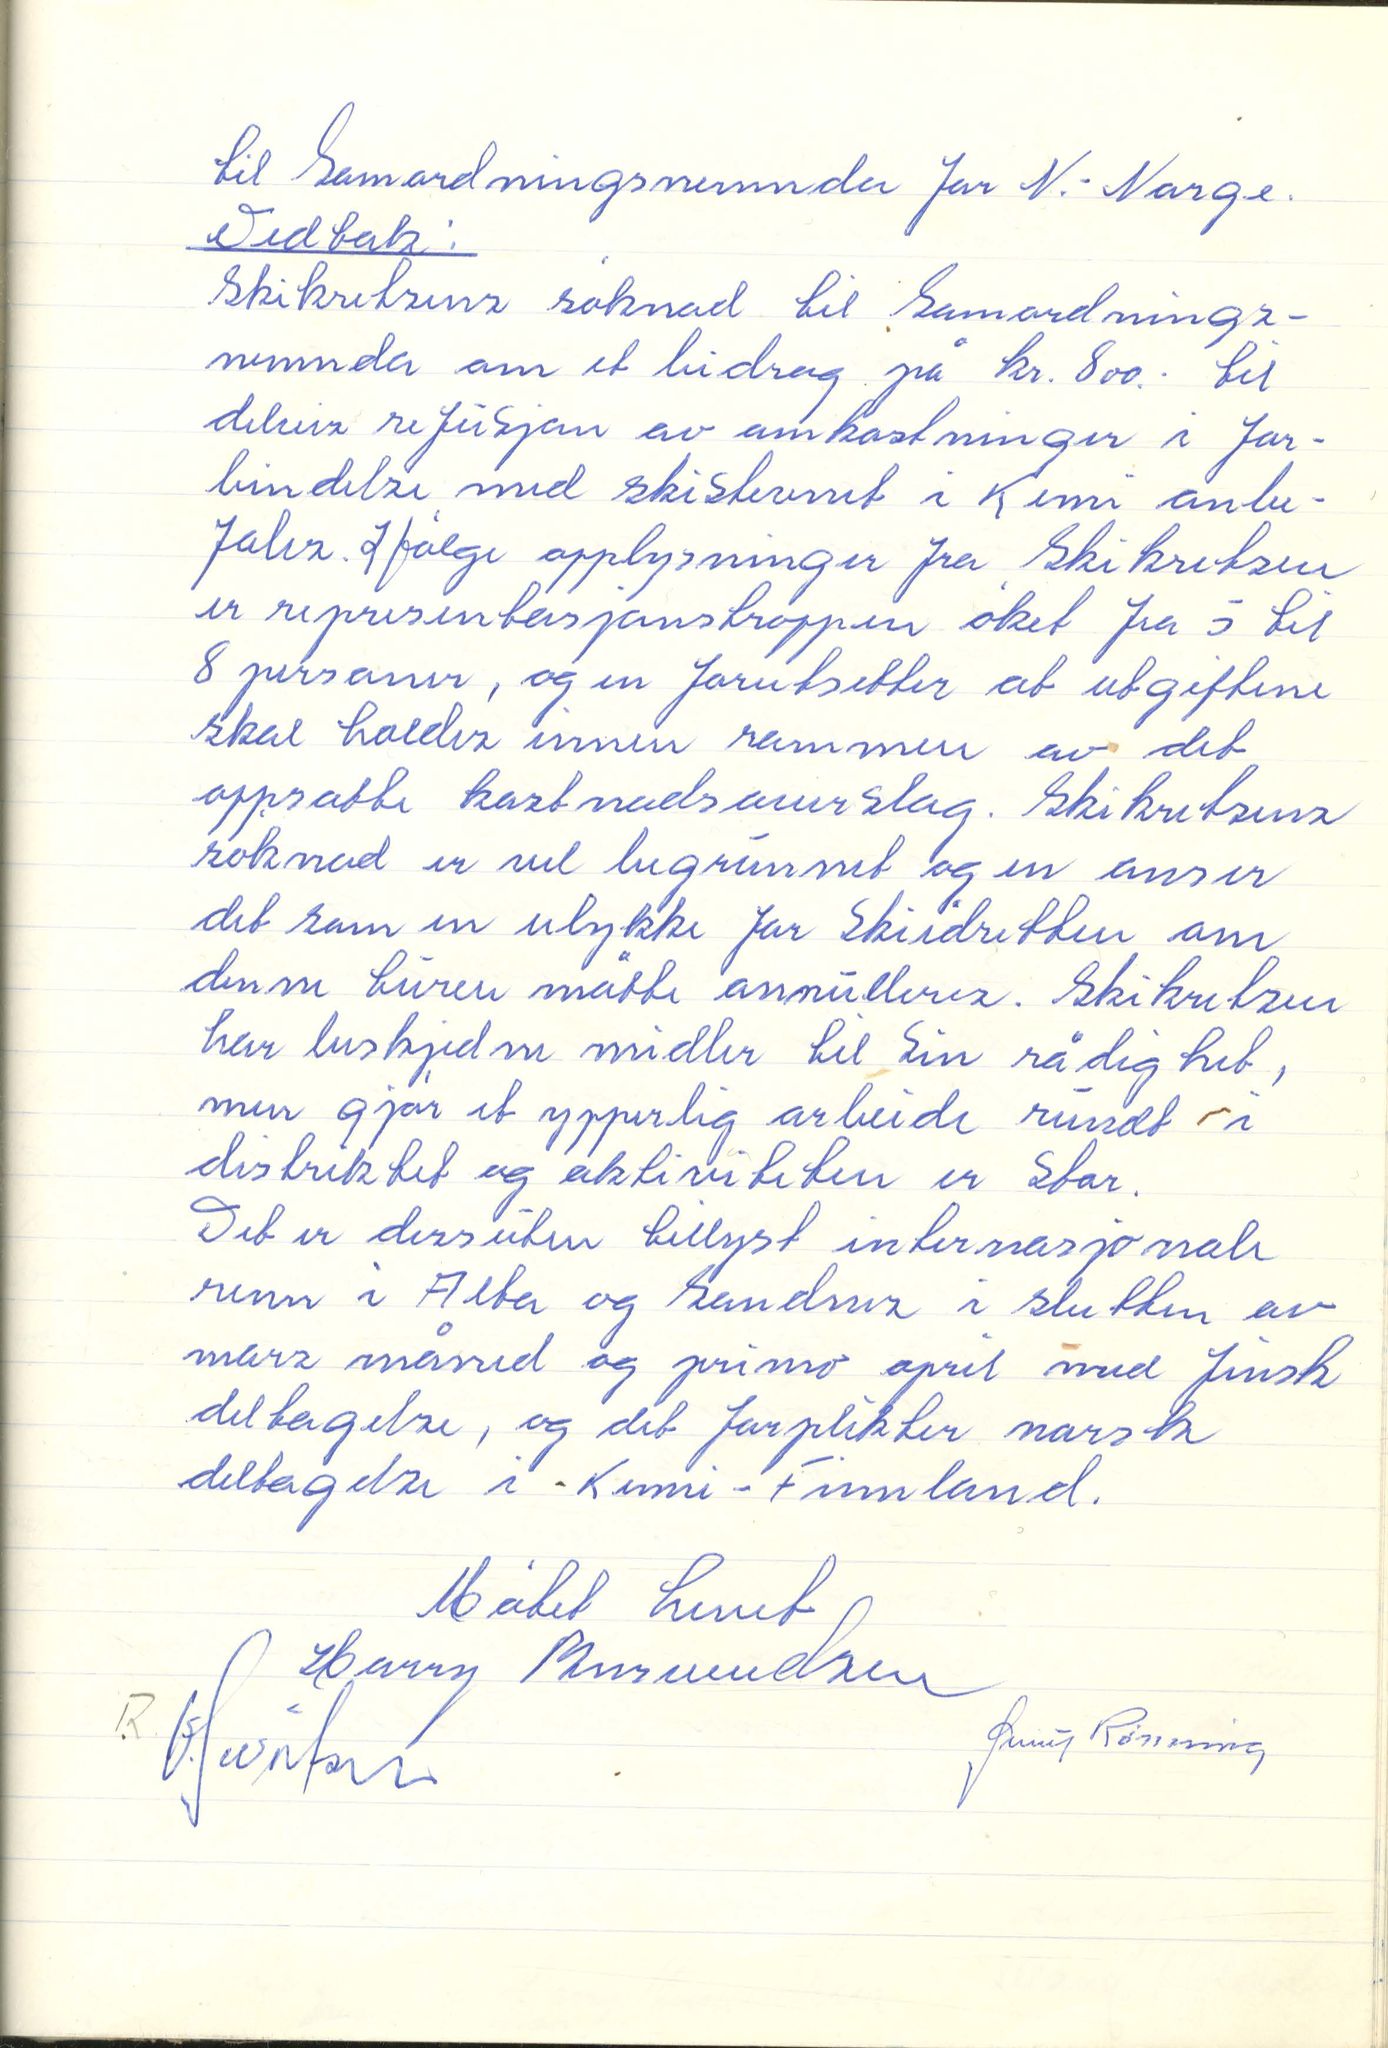 til Samordningsnemnda for N.- Norge.
Vedtak:
Skikretsens söknad til Samordnings-
nemnda om et bidrag på kr. 800.- til
delvis refusjon av omkostninger i for-
bindelse med skistevnet i Kemi anbe-
fales. Ifölge opplysninger fra Skikretsen
er representasjonstroppen öket fra 5 til
8 personer, og en forutsetter at utgiftene
skal holdes innen rammen av det
oppsatte kostnadsoverslag. Skikretsens
söknad er vel begrunnet og en anser
det som en ulykke for skiidretten om
denne turen måtte annulleres. Skikretsen
har beskjedne midler til sin rådighet,
men gjör et ypperlig arbeide rundt i
distriktet og aktiviteten er stor.
Det er dessuten tillyst internasjonale
renn i Alta og Sandnes i slutten av
mars måned og primo april med finsk
deltagelse, og det forplikter norsk
deltagelse i Kemi - Finnland.
Mötet hevet
Harry Amundsen
R.
Jenny Rönning